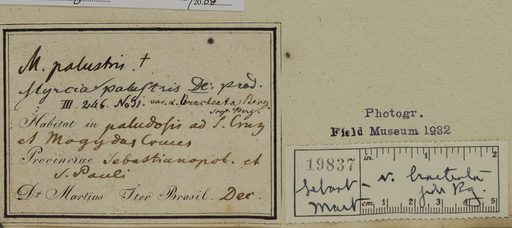 20.08
M. palustris. †
Myrcia palustris DC. prod.
III. 246. No 31. var. α. bracteata Berg.
Habitat in paludosis ad S. Cruz
et Mogy das Cruces
Provinciae Sebastianopol. et
S. Pauli
Dr Martius Iter Brasil. Dec.
Photogr.
Field Museum 1932
19837
in. 1 2
v. bracteata
Berg.
Mart
cm. 1 2 3 4 5